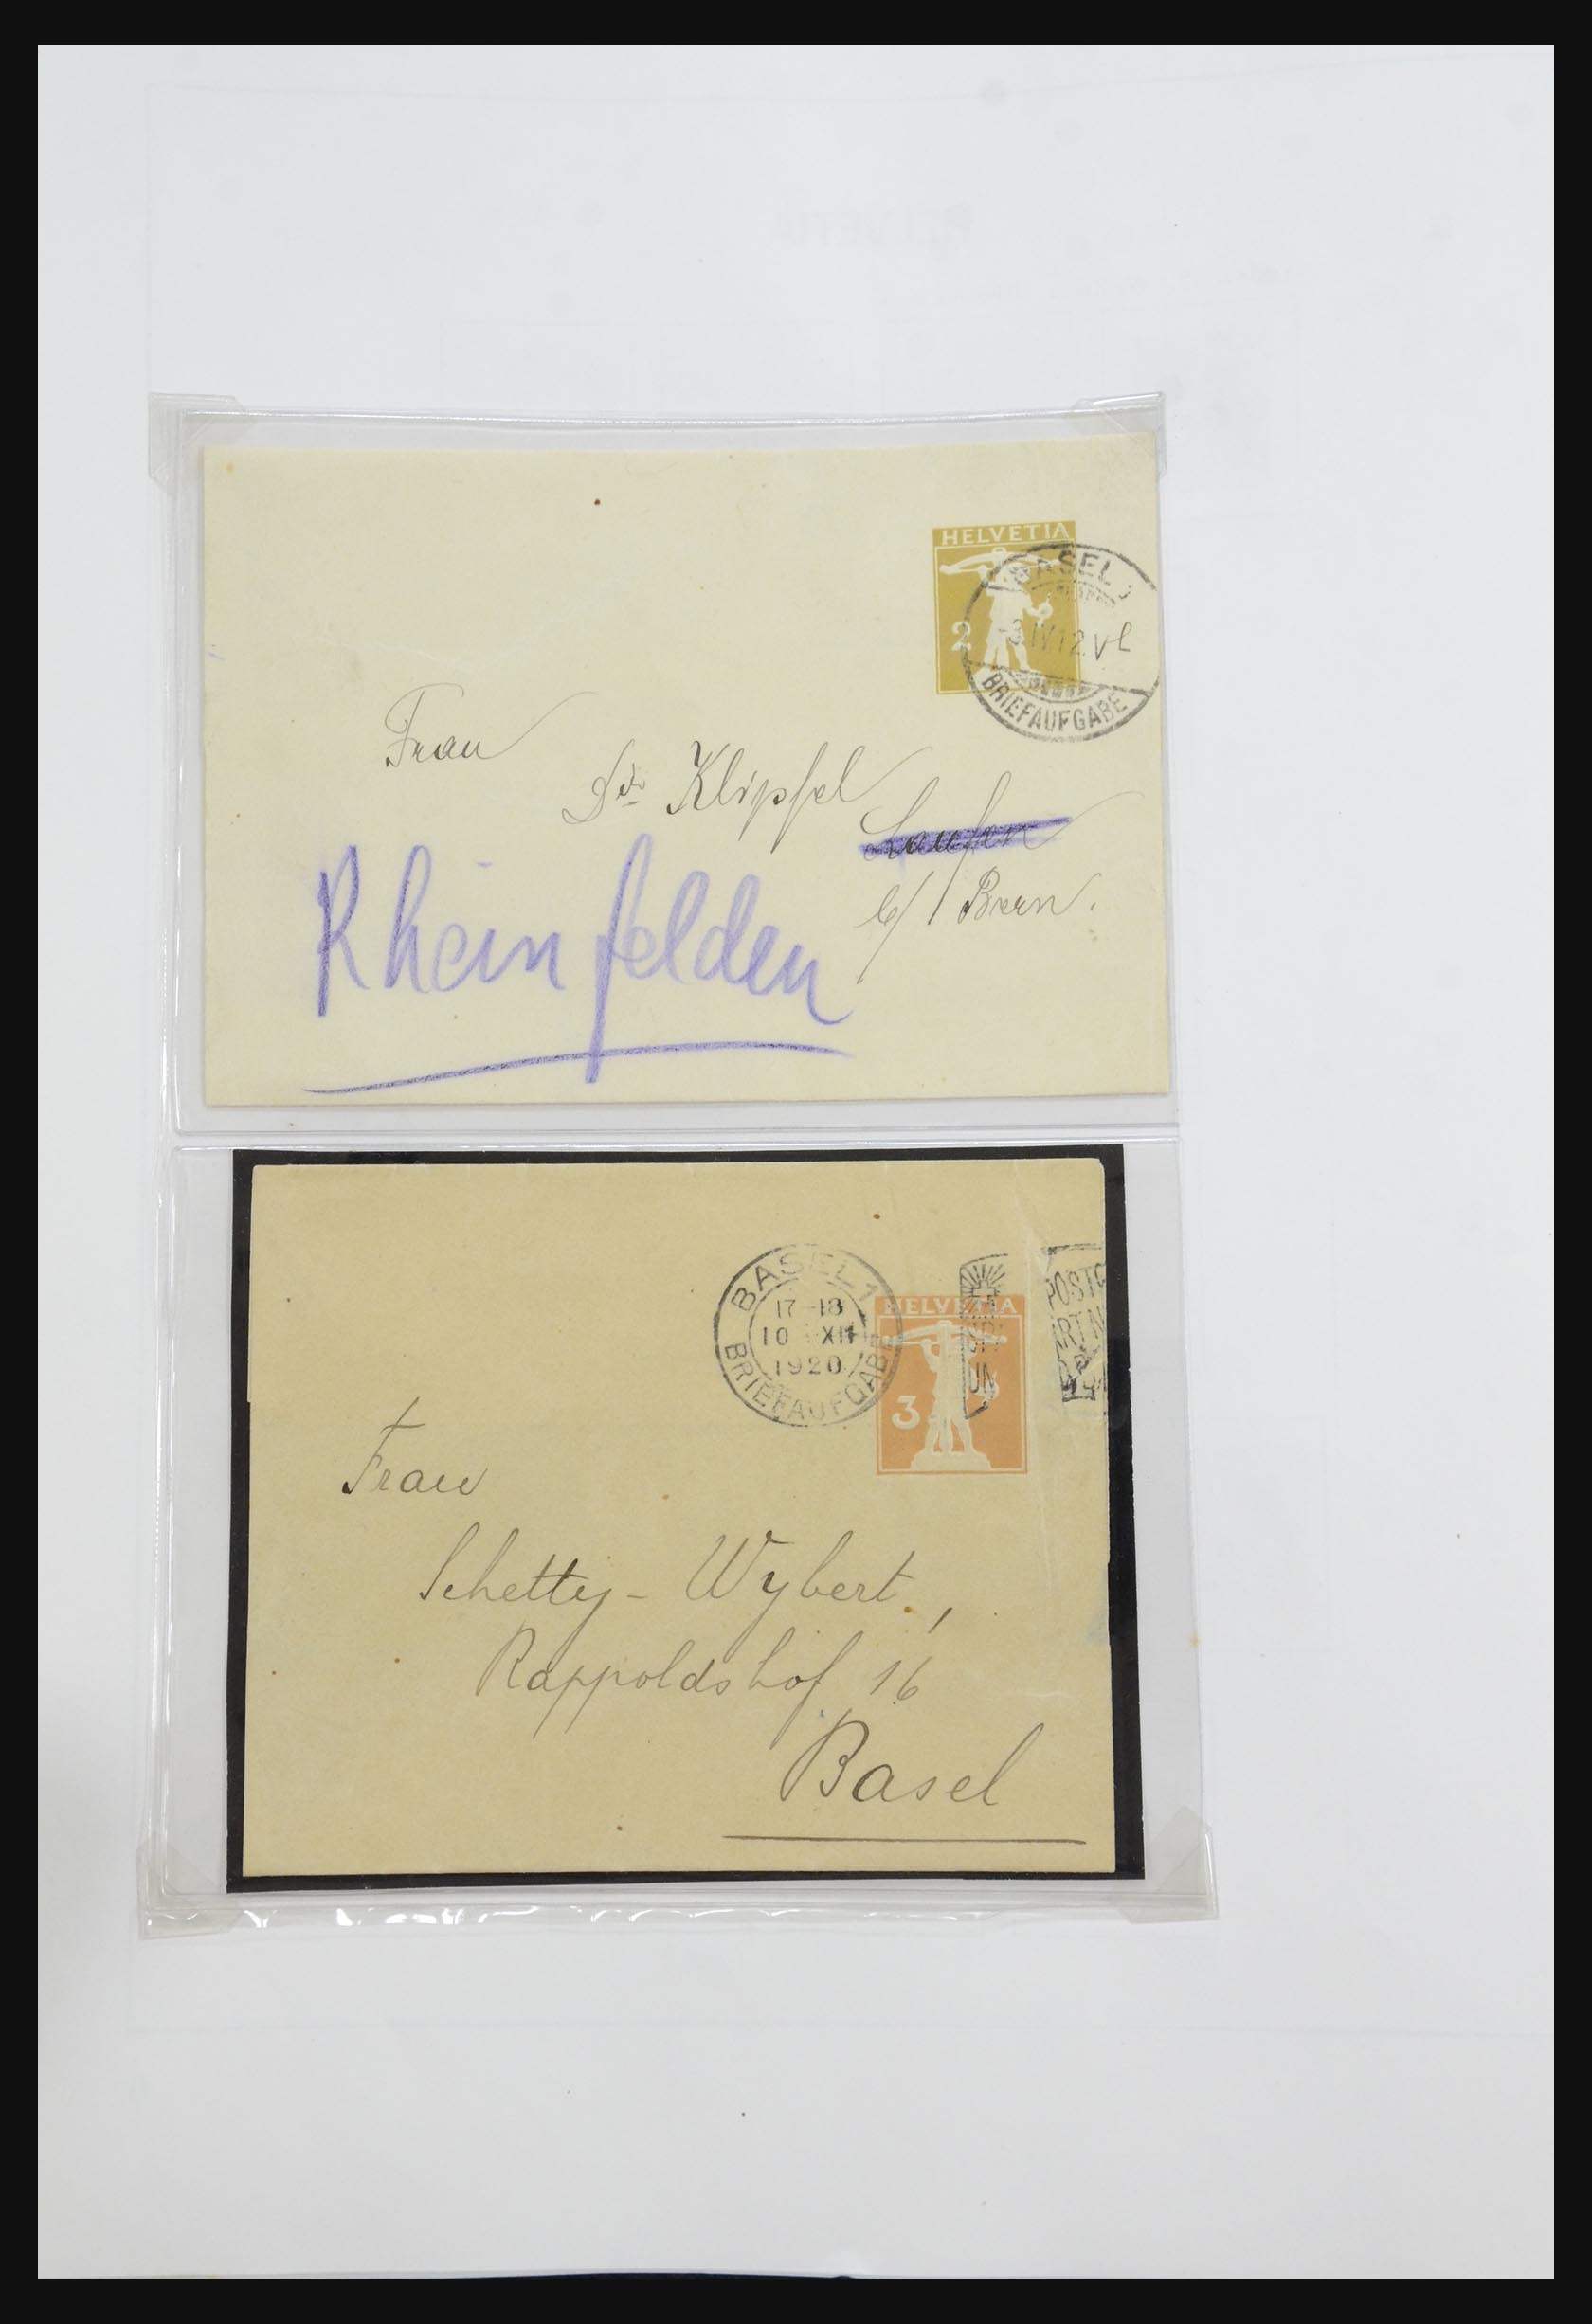 HELVETIA
2
BASEL 1
-3.IV.12.V
BRIEFAUFGABE
Frau
Dr. Klipfel
Laufen
b/ Bern.
Rheinfelden
BASEL 1
17-18
10 XII
1920
BRIEFAUFGABE
HELVETIA
3
Frau
Schetty-Wybert,
Rappoldshof 16
Basel